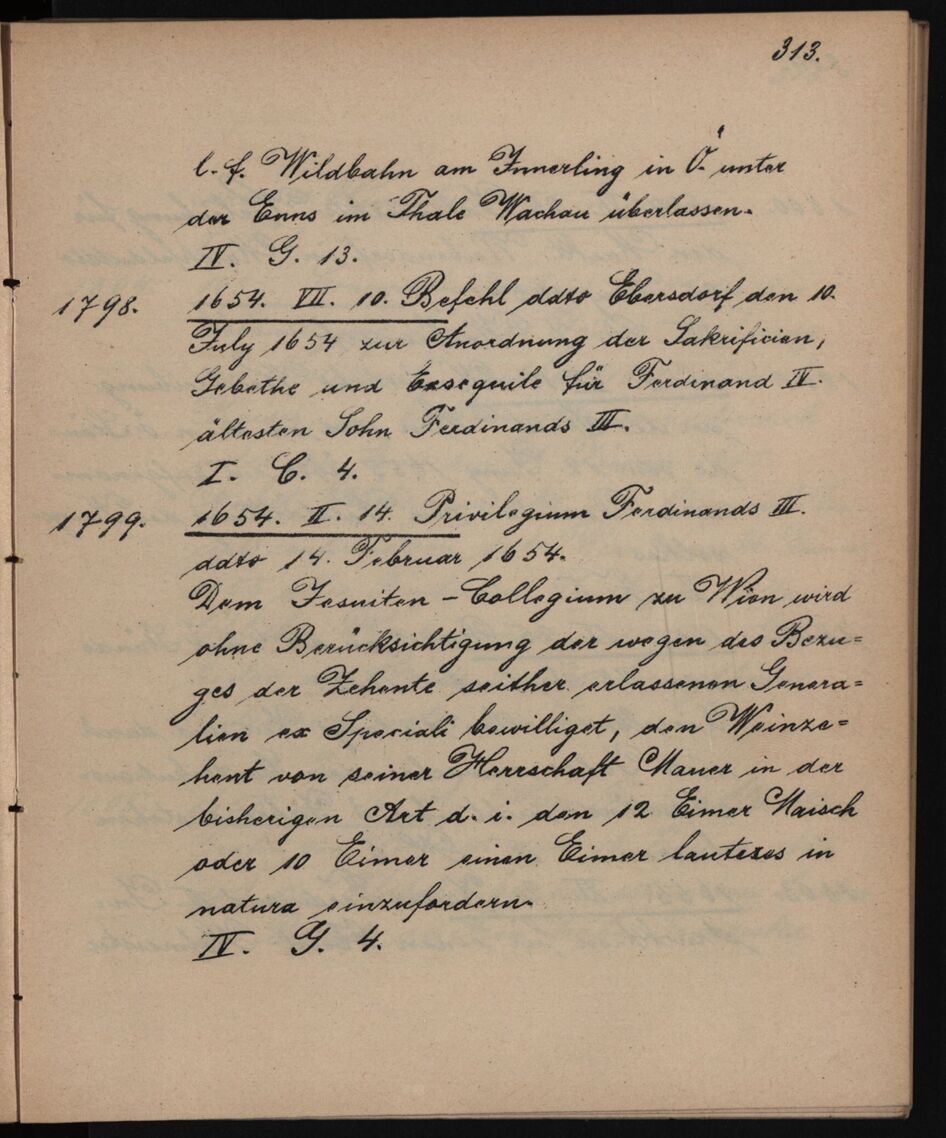 313.
l. f. Wildbahn am Innerling in Ö. unter
der Enns im Thale Wachau überlassen.
IV. G. 13.
1798. 1654. VII. 10. Befehl ddto Ebersdorf den 10.
July 1654 zur Anordnung der Sakrificien,
Gebethe und Exsequile für Ferdinand IV.
ältesten Sohn Ferdinands III.
I. C. 4.
1799. 1654. II. 14. Privilegium Ferdinands III.
ddto 14. Februar 1654.
Dem Jesuiten-Collegium zu Wien wird
ohne Berücksichtigung der wegen des Bezu=
ges der Zehente seither erlassenen Genera=
lien ex Speciali bewilliget, den Weinze=
hent von seiner Herrschaft Mauer in der
bisherigen Art d. i. den 12 Eimer Maisch
oder 10 Eimer einen Eimer lauteres in
natura einzufordern.
IV. G. 4.